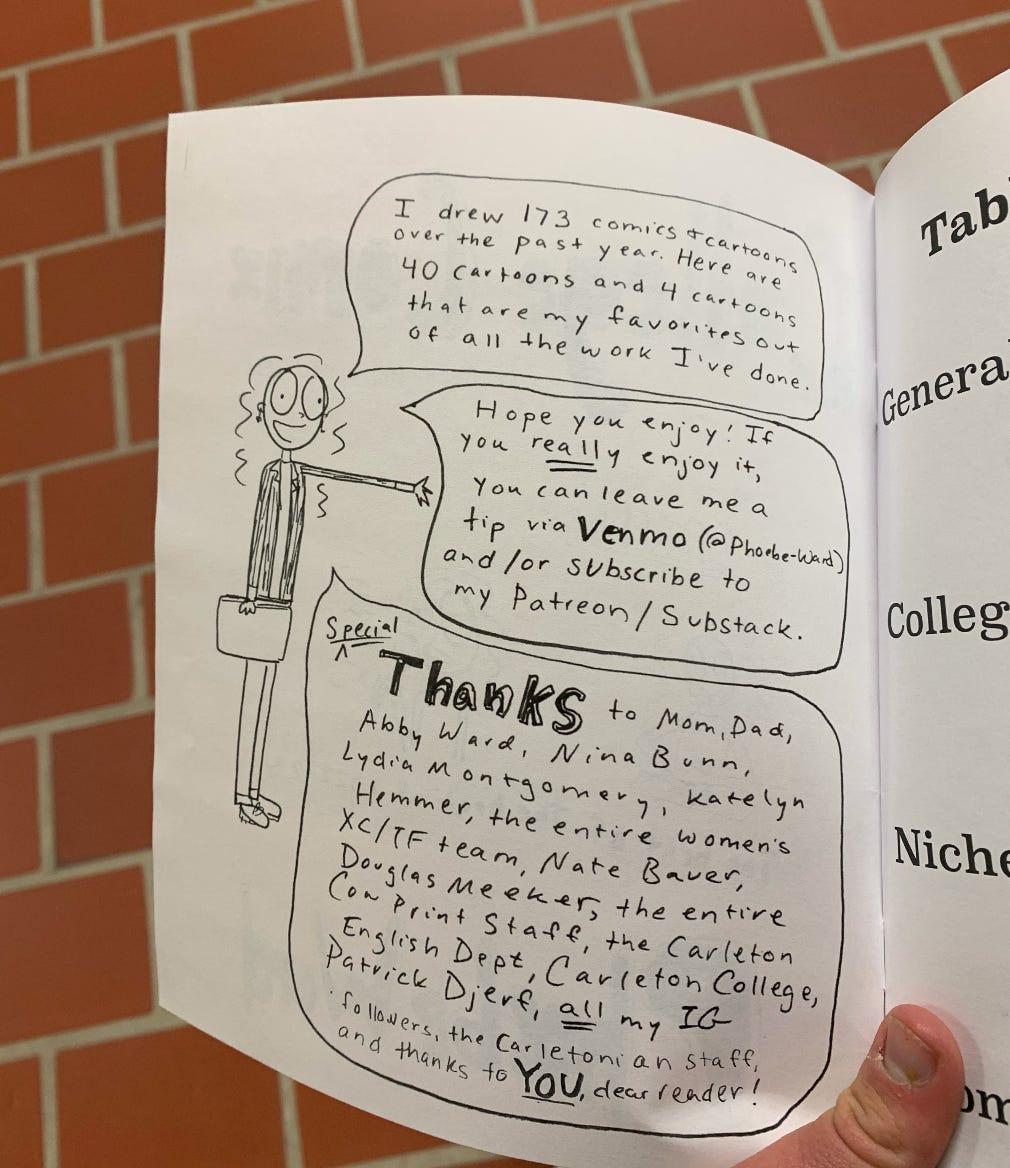 I drew 173 comics + cartoons
over the past year. Here are
40 cartoons and 4 cartoons
that are my favorites out
of all the work I've done.
Hope you enjoy! If
you really enjoy it,
you can leave me a
tip via Venmo (@Phoebe-Ward)
and/or subscribe to
my Patreon/Substack.
Special
Thanks to Mom, Dad,
Abby Ward, Nina Bunn,
Lydia Montgomery, Katelyn
Hemmer, the entire women's
XC/TF team, Nate Bauer,
Douglas Meekers, the entire
Cow Print Staff, the Carleton
English Dept, Carleton College,
Patrick Djerf, all my IG
followers, the Carletonian staff,
and thanks to YOU, dear reader!
Tab
General
Colleg
Niche
om